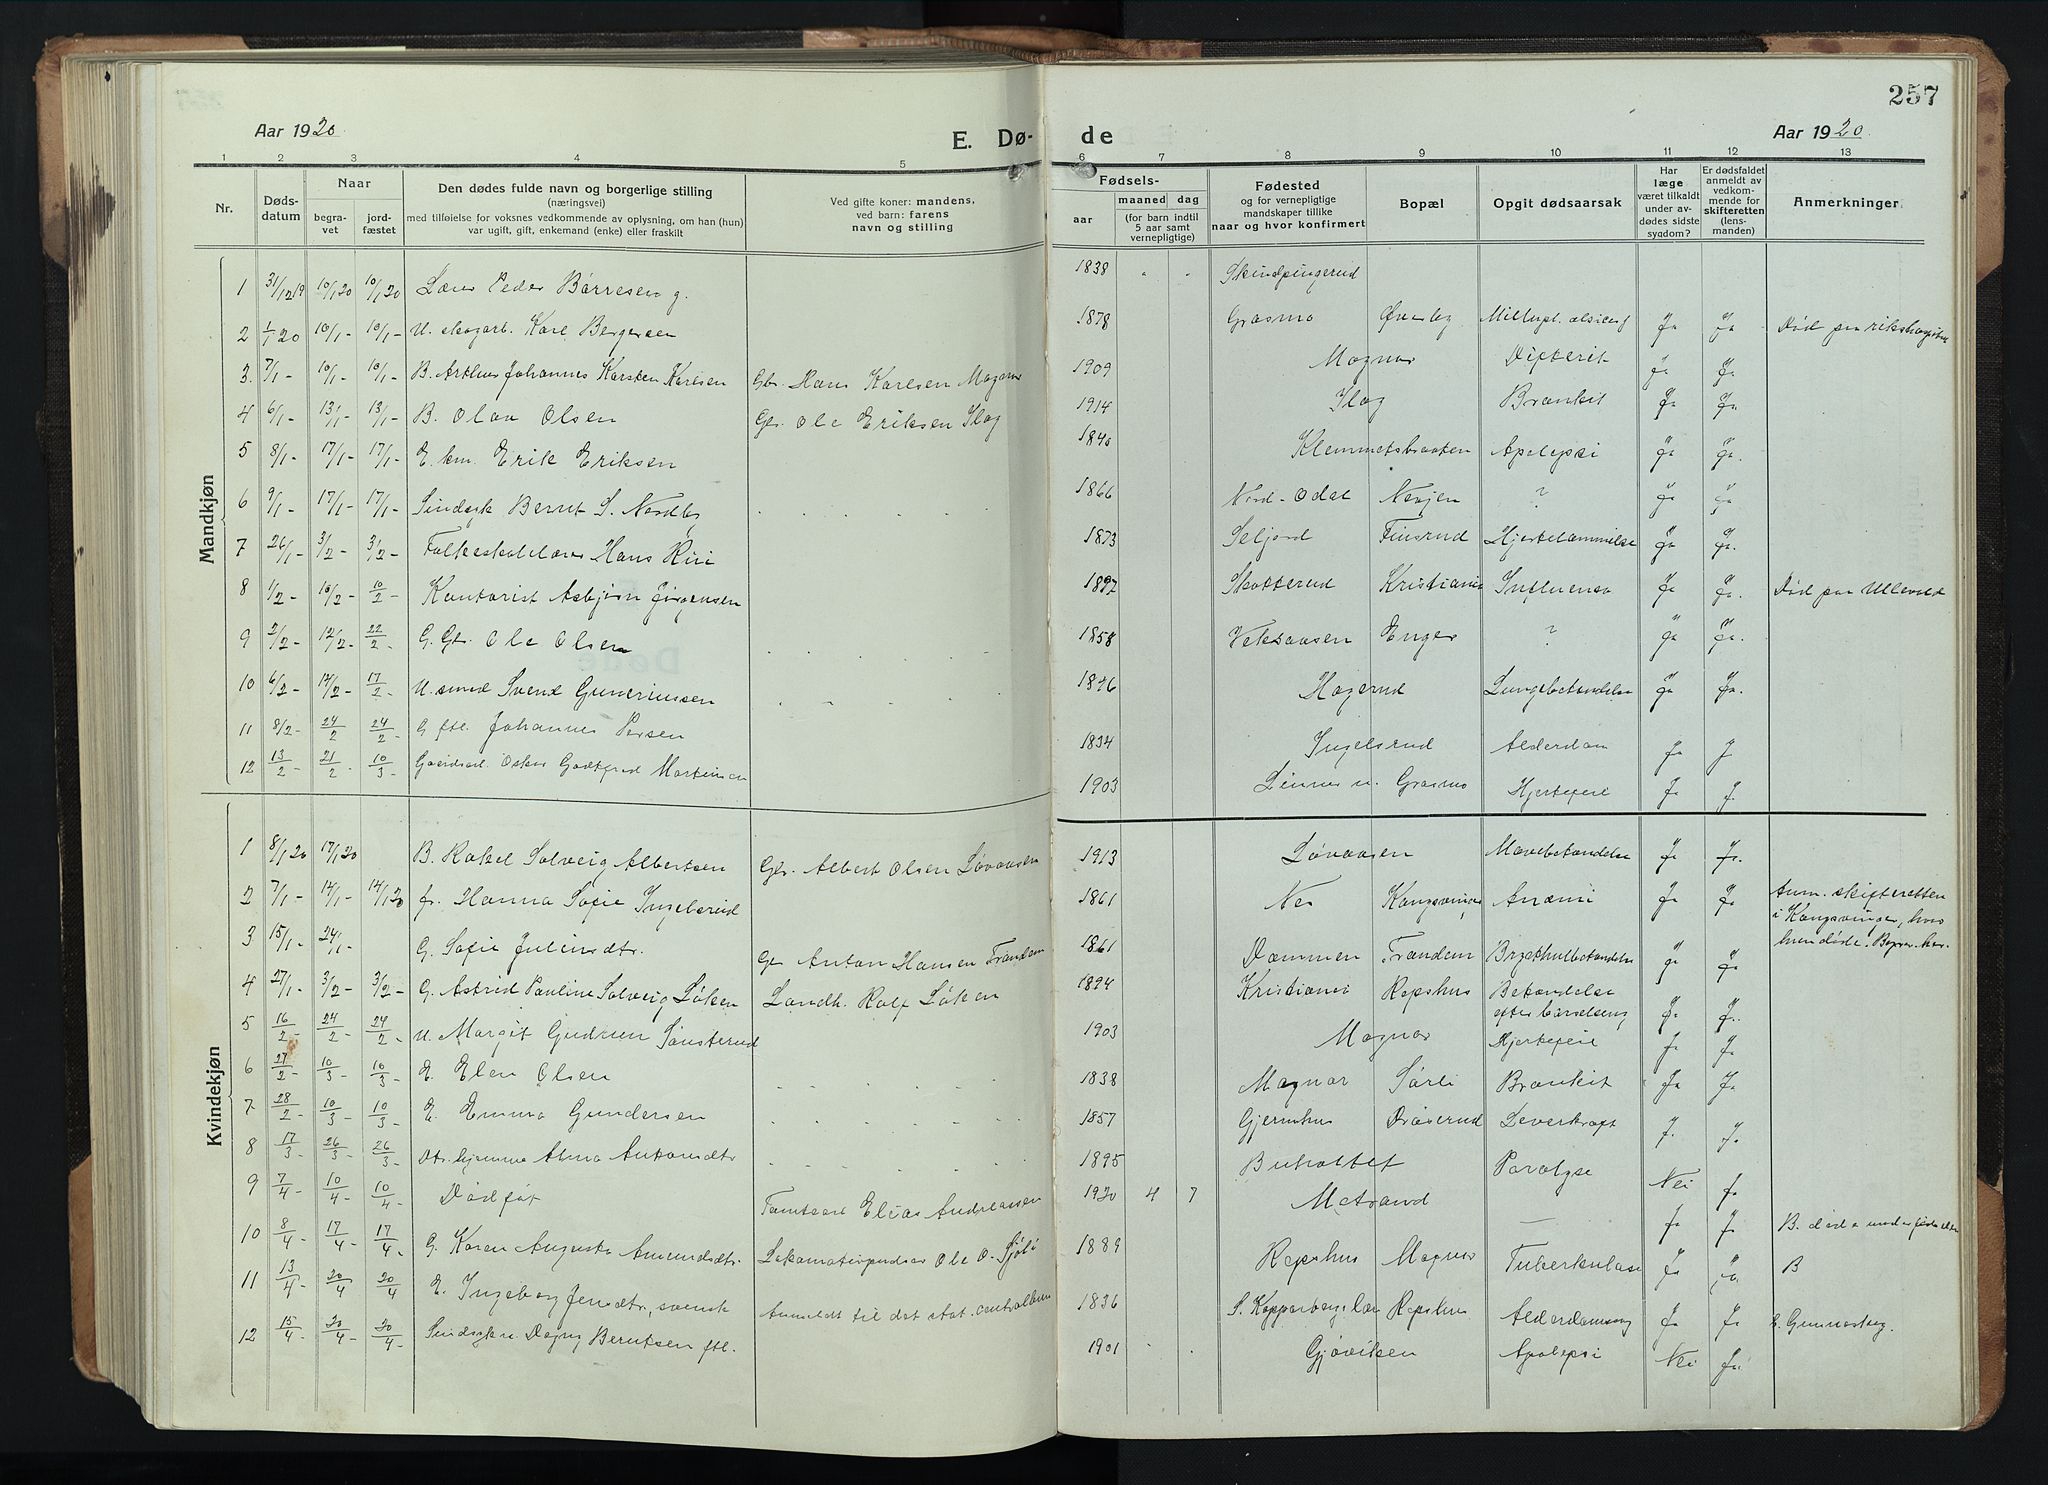 257
Aar 1920.
E. Dø-
de
Aar 1920.
1 2 3 4 5 6 7 8 9 10 11 12 13
Nr.
Døds-
datum
Naar
begra-
vet
jord-
fæstet
Den dødes fulde navn og borgerlige stilling
(næringsvei)
med tilføielse for voksnes vedkommende av oplysning, om han (hun)
var ugift, gift, enkemand (enke) eller fraskilt
Ved gifte koner: mandens,
ved barn: farens
navn og stilling
Fødsels-
aar
maaned dag
(for barn indtil
5 aar samt
vernepligtige)
Fødested
og for vernepligtige
mandskaper tillike
naar og hvor konfirmert
Bopæl
Opgit dødsaarsak
Har
læge
været tilkaldt
under av-
dødes sidste
sygdom?
Er dødsfaldet
anmeldt av
vedkom-
mende for
skifteretten
(lens-
manden)
Anmerkninger
Mandkjøn
1 31/12 19 10/1 20 10/1 20 Peder Børresen g. 1838
2 1/1 20 10/1 - 10/1 - U. skogarb. Karl Bergersen 1878 Grasmo Øverby Ja Ja Død paa rikshospitalet
3. 7/1 - 10/1 - 10/1 - B. Arthur Johannes Karsten Karlsen Gbr. Hans Karlsen Magnor 1909 Magnor Difterit Ja Ja.
4 6/1 - 13/1 - 13/1 - B. Olav Olsen Ole Eriksen 1914 Bronkit Ja Ja.
5 8/1 - 17/1 - 17/1 - E. km. Erik Eriksen 1840 Klemmetsbraaten Apolepsi Ja Ja.
6 9/1 - 17/1 - 17/1 - Sindsyk Bernt S. Nordby 1866 Nord-Odal ? Ja Ja
7 26/1 - 3/2 - 3/2 - Folkeskolelærer Hans Riii 1873 Seljord Finsrud Hjertelammelse Ja Ja.
8 1/2 - 10/2 - 10/2 - Kontorist Asbjørn Jørgensen 1897 Skotterud Kristiania Influensa Ja Ja. Død paa Ullevold
9 2/2 - 12/2 - 22/2 - G. Gbr. Ole Olsen 1858 Enger ? Ja Ja.
10 6/2 - 14/2 - 17/2 - U. smed Svend Guneriussen 1846 Hagerud Lungebetændelse Ja Ja.
11 8/2 - 24/2 24/2 - G. ftl. Johannes Persen 1834 Ingelsrud Alderdom Ja J
12 13/2 - 21/2 - 10/3 - Gaardsarb. Oskar Godtfred Martinsen 1903 Linnes u. Grasmo Hjertefeil Ja J.
Kvindekjøn
1 8/1 20 17/1 20 B. Rakel Solveig Albertsen Gbr. Albert Olsen Løvaasen 1913 Løvaasen Mavebetændelse Ja Ja.
2 7/1 - 14/1 - 14/1 20 fr. Hanna Sofie Ingelsrud 1861 Nei Kongsvinger Anæmi Ja Ja Anm. skifteretten
i Kongsvinger, hvor
hun døde.
3 15/1 - 24/1 - G. Sofie Juliusdtr. Anton Hansen Trandem 1861 Dammen Trandem Brysthulbetændelse Ja Ja
4 27/1 - 3/2 - 3/2 - G. Astrid Pauline Solveig Løken Landh. Rolf Løken 1894 Kristiania Repshus Betændelse
efter barselseng Ja Ja.
5 16/2 - 24/2 - 24/2 - U. Margit Gudrun Sønsterud 1903 Magnor Hjertefeil Ja Ja
6 27/2 - 10/3 - 10/3 - E. Elen Olsen 1838 Magnor Sørli Bronkit Ja Ja
7 28/2 - 10/3 - 10/3 - E. Emma Gundersen 1857 Gjernshus Leverkræft J. Ja
8 17/3 - 26/3 - 26/3 - Dtr. hjemme Alma Antonsdtr 1895 Buholtet Paralyse Nei Ja
9 7/4 - 10/4 - 10/4 - Dødføt Elias Andreassen 1920 4 7 Matrand — Ja Ja
10 8/4 - 17/4 - 17/4 - G. Karen Augusta Amundsdtr. Lokomotivpudser Ole O. Sjøli 1889 Repshus Magnor Tuberkulose Ja Ja B
11 13/4 - 20/4 - 20/4 - E. Ingeborg Jensdtr, svensk Anmeldt til det stat. centralbur 1836 S. Kopparbergs län Repshus Alderdomssvag Ja Ja
12 15/4 - 20/4 - 20/4 - Sindsyk u. Dagny Berntsen ftl. 1901 Gjøviksen Apolepsi Nei Ja.